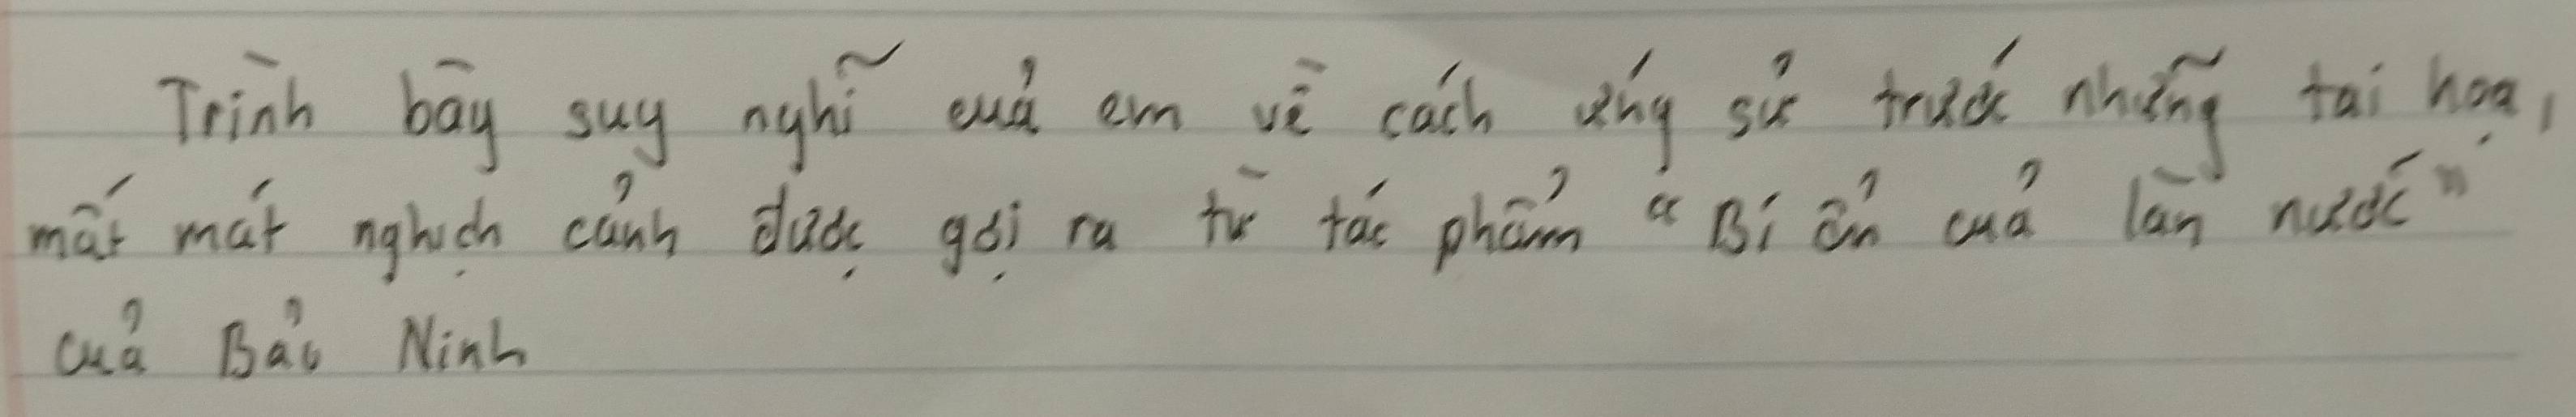 Trình bày suy nghĩ cuả em về cách ứng sử trước những tai hoạ,
mất mát nghịch cảnh được gợi ra từ tác phẩm "Bí ẩn cuả làn nước"
cuả Bảo Ninh